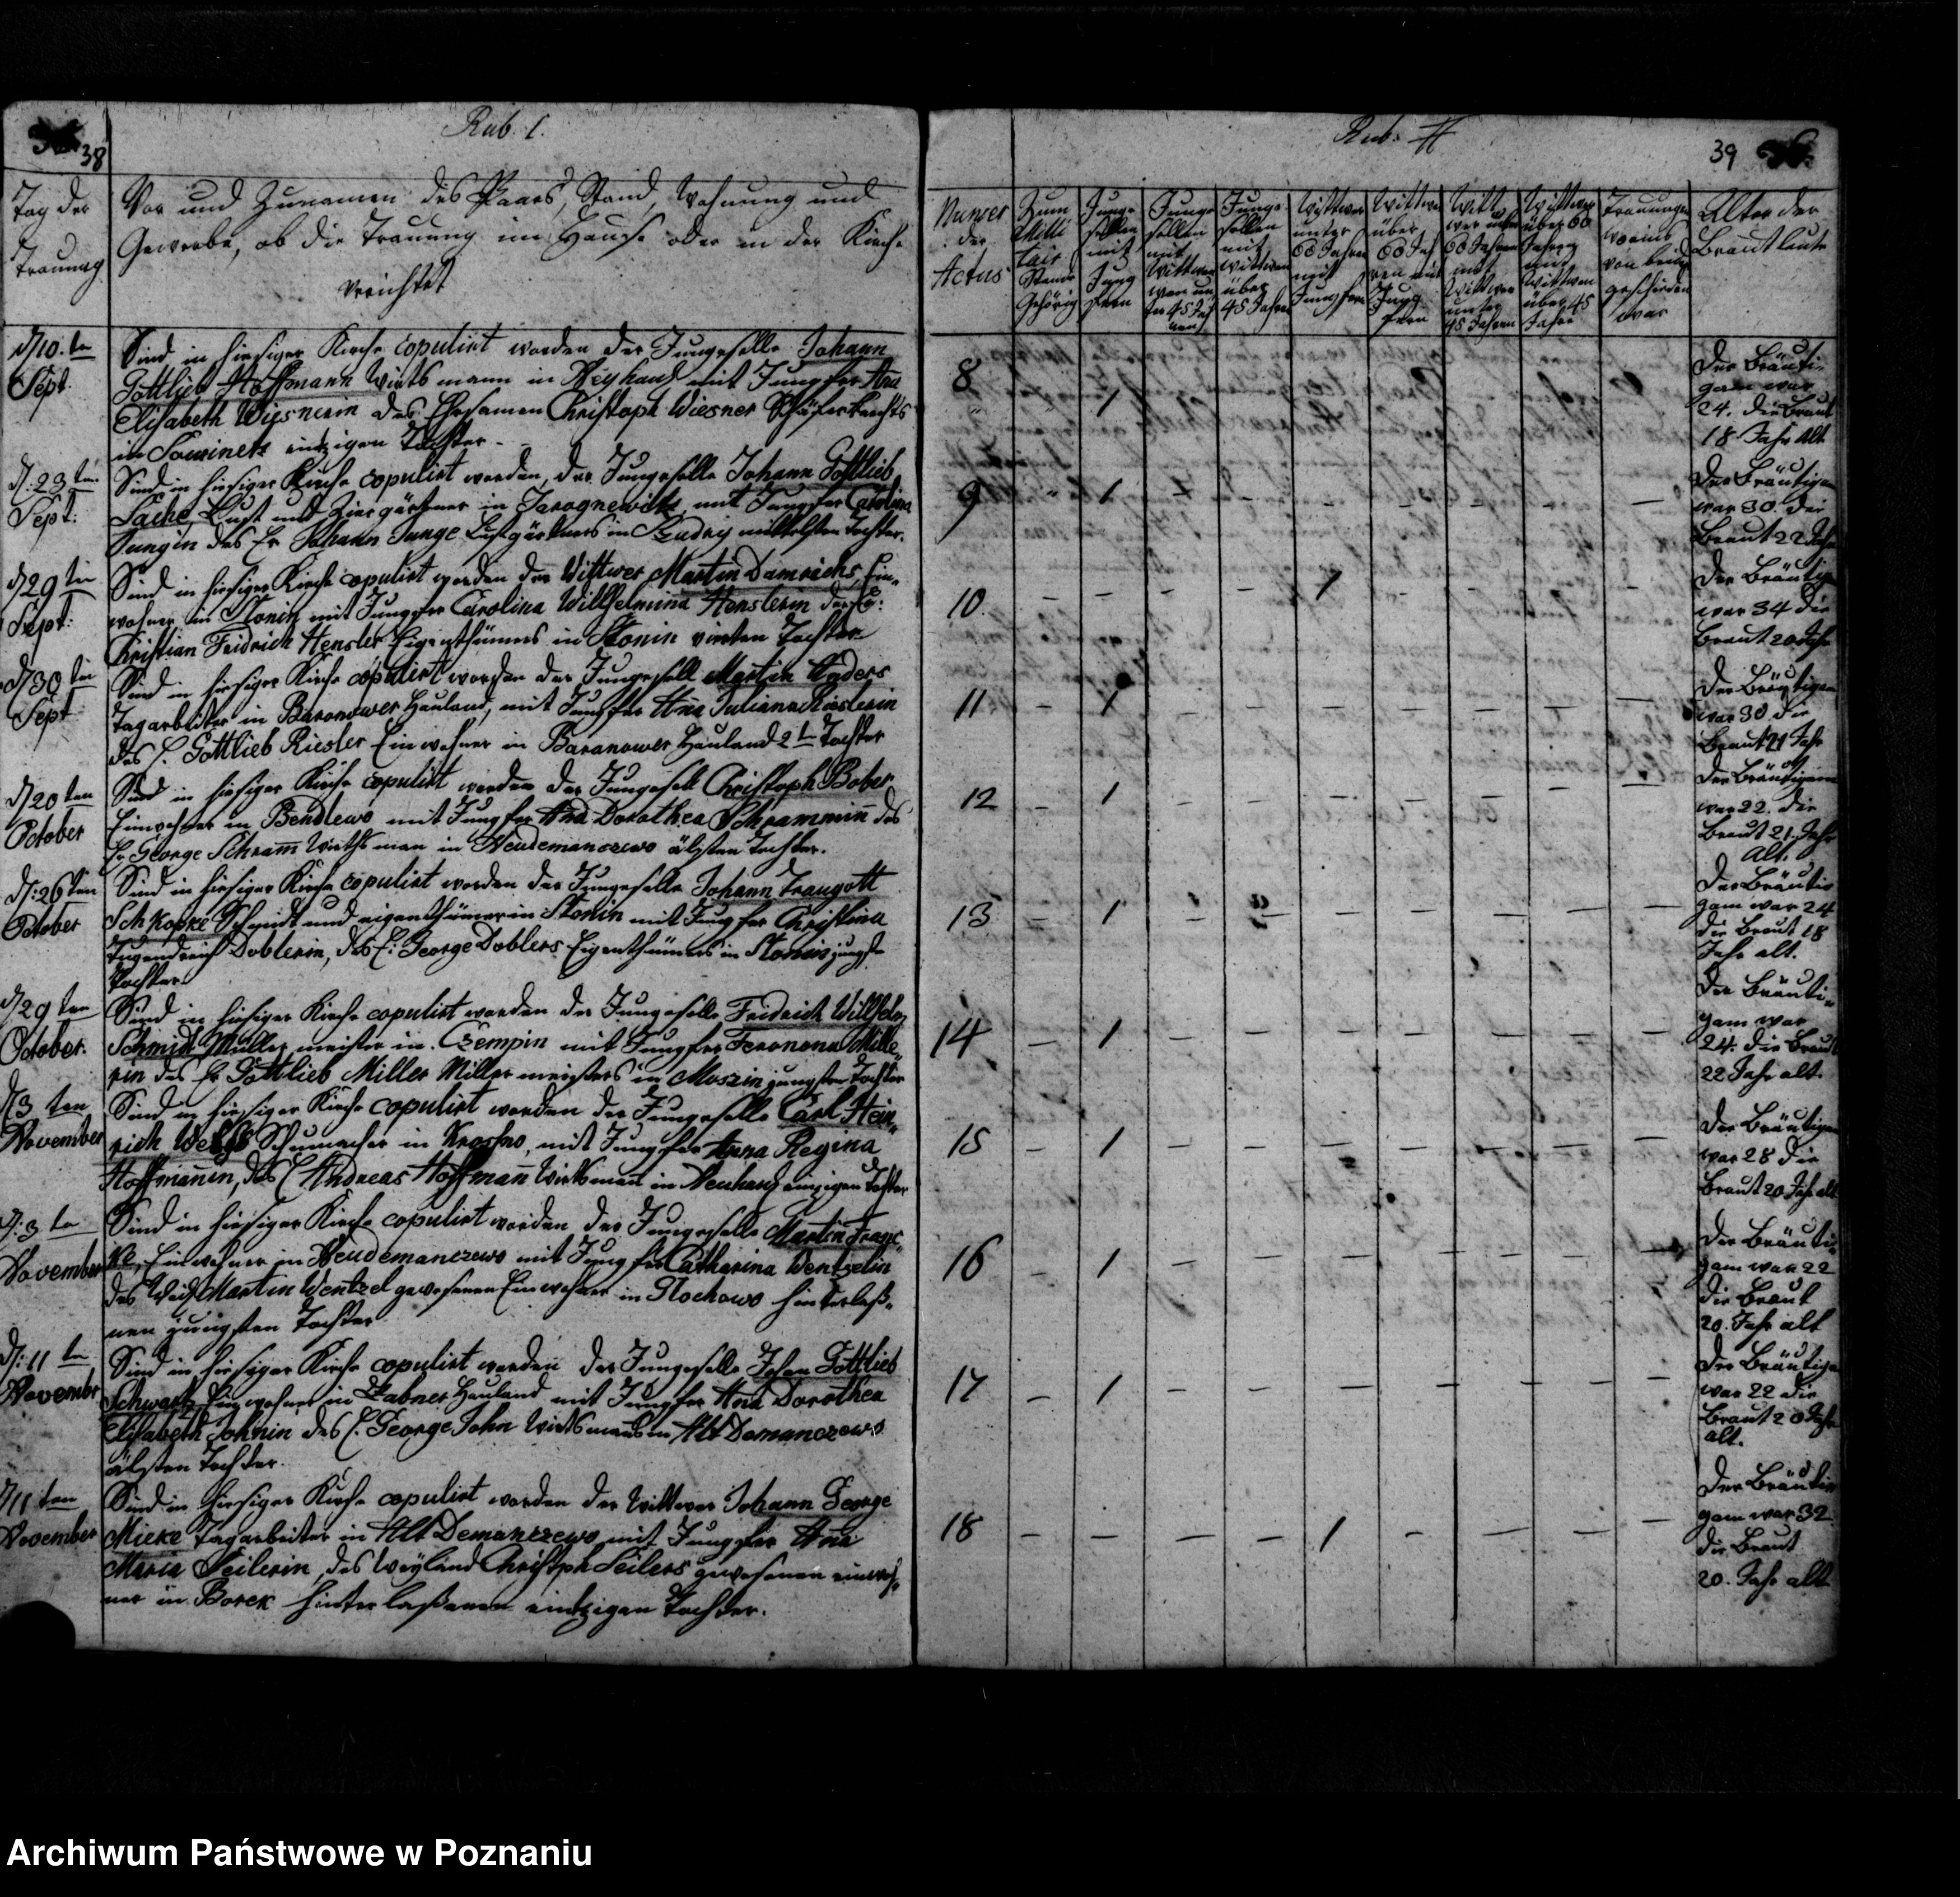 38
Rub. I.
Tag der
Trauung
Vor und Zunamen des Paars, Stand, Wohnung und
Gewerbe, ob die Trauung im Hause oder in der Kirche
verrichtet
d. 10. ten
Sept.
Sind in hiesiger Kirche copulirt worden der Junggeselle Johann
Gottlieb Hoffmann Wirtsmann in Neyhauß mit Jungfer Ana
Elisabeth Wiesnerin des Ehrsamen Christoph Wiesner Schäferknechts
in eintzigen Tochter.
d. 23 ten
Sept:
Sind in hiesiger Kirche copulirt worden, der Junggeselle Johann Gottlieb
Sache, Lust und Ziergärtner in Jarognewitz, mit Jungfer Carolina
Jungin des Hr. Johann Junge Lustgärtners in mittelsten Tochter.
d. 29 ten
Sept:
Sind in hiesiger Kirche copulirt worden der Wittwer Martin Damrichs, Ein-
wohner in Slonin mit Jungfer Carolina Willhelmina Henslerin des E:
Kristian Fridrich Hensler Eigenthümers in Slonin vierten Tochter
d. 30 ten
Sept
Sind in hiesiger Kirche copulirt worden der Junggesell Martin Anders
Tagarbeiter in Baranower Hauland, mit Jungfer Ana Juliana Rieslerin
des E. Gottlieb Riesler Einwohner in Baranower Hauland 2t Tochter
d. 20 ten
October
Sind in hiesiger Kirche copulirt worden der Junggesell Christoph Bober
Einwohner in Bendlewo mit Jungfer Ana Dorothea Schrammin des
Hr. George Schram Wirthsman in Neudemanczewo ältsten Tochter.
d. 26 ten
October
Sind in hiesiger Kirche copulirt worden der Junggeselle Johann Traugott
Schkopke Schmidt und eigenthümer in Slonin mit Jungfer Christina
Tugendreich Doblerin, des E. George Doblers Eigenthümers in Slonin jüngste
Tochter
d. 29 ten
October.
Sind in hiesiger Kirche copulirt worden der Junggeselle Fridrich Willhelm
Schmidt Müller meister in Czempin mit Jungfer Feronona Mille-
rin des Hr Gottlieb Miller Miller meisters in Moszin jüngsten Tochter
d. 3 ten
November
Sind in hiesiger Kirche copulirt worden der Junggeselle Carl Hein-
rich Schumacher in Krostno, mit Jungfer Anna Regina
Hoffmanin, des E Andreas Hoffman Wirtsman in Neuhauß einzigen Tochter
d. 3 te
November
Sind in hiesiger Kirche copulirt worden der Junggeselle Martin Franc-
ke, Einwohner in Neudemanczewo mit Jungfer Catharina Wentzelin
des Weyl Martin Wentzel gewesenen Einwohner in Glochowo hinterlaß-
nen jüngsten Tochter
d. 11 te
November
Sind in hiesiger Kirche copulirt worden der Junggeselle Johan Gottlieb
Schwartz Einwohner in Zabner Hauland mit Jungfer Ana Dorothea
Elisabeth Johnin des E. George John Wirtsmans in Alt Demanczewo
ältsten Tochter.
d. 11 ten
November
Sind in hiesiger Kirche copulirt worden der Wittwer Johann George
Mieke Tagarbeiter in Alt Demanczewo mit Jungfer Ana
Maria Seilerin, des Weyland Christoph Seilers gewesenen einwoh-
ner in Borek hinterlaßenen eintzigen Tochter.
Rub: II
39
Numer
der
Actus
Zum
Milli
tair
Stande
Gehörig
Jung-
sellen
mit
Jung
fern
Jung-
sellen
mit
Wittwen
un
ter 45 Jah
ren
Jungge-
sellen
mit
Wittwen
über
45 Jahre
Wittwer
unter
60 Jahren
mit
Jungfern
Wittwer
über
60 Jah
ren mit
Jung
fern
Witt
wer unter
60 Jahren
mit
Wittwen
unter
45 Jahren
Wittwer
über 60
Jahren
mit
Wittwen
über 45
Jahre
Trauungen
worin
von beiden
geschieden
war
Alter der
Brautleute
8 " " 1
Der Bräuti-
gam war
24. die Braut
18 Jahr alt
9 " 1 - - - - - - -
Der Bräutigam
war 30. die
Braut 22 Jahr
10. - - - - 1 - - - -
Der Bräutigam
war 34 die
Braut 20 Jahr
11 - 1 - - - - - - -
Der Bräutigam
war 30 die
Braut 21 Jahr
alt
12 - 1 - - - - - - -
Der Bräutigam
war 22. die
Braut 21. Jahr
Alt.
13 - 1 - - - - - - -
Der Bräuti-
gam war 24
die Braut 18
Jahr alt.
14 - 1 - - - - - - -
Der Bräuti-
gam war
24. die Braut
22 Jahr alt.
15 - 1 - - - - - - -
Der Bräutigam
war 28 die
Braut 20 Jahr alt
16 - 1 - - - - - - -
Der Bräuti-
gam war 22
die Braut
20. Jahr alt
17 - 1 - - - - - - -
Der Bräutigam
war 22 die
Braut 20 Jahr
alt.
18 - - - - 1 - - - -
Der Bräuti-
gam war 32.
die Braut
20. Jahr alt
Archiwum Państwowe w Poznaniu